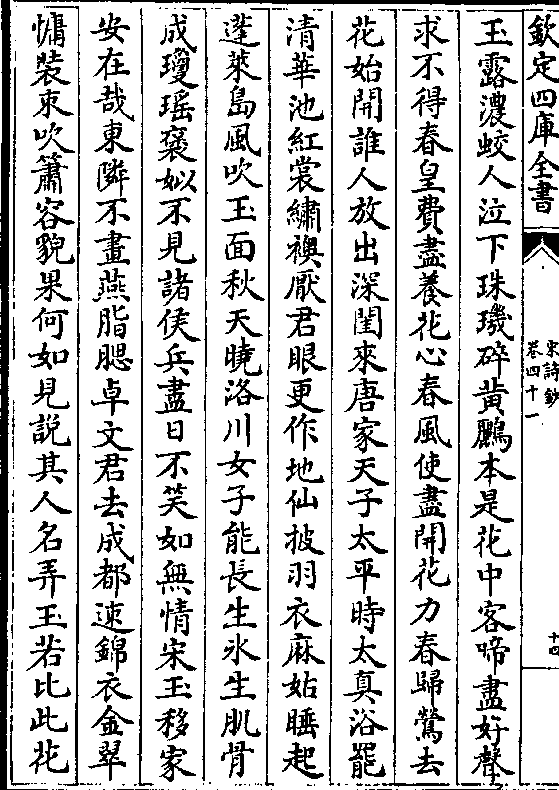 欽定四庫全書
宋詩鈔
卷四十一
十四
玉露濃蛟人泣下珠璣碎黄鸝本是花中客啼盡好聲
求不得春皇費盡養花心春風使盡開花力春歸鶯去
花始開誰人放出深閨來唐家天子太平時太真浴罷
清華池紅裳繡襖厭君眼更作地仙披羽衣麻姑睡起
蓬萊島風吹玉面秋天曉洛川女子能長生氷生肌骨
成瓊瑶褒姒不見諸侯兵盡日不笑如無情宋玉移家
安在哉東隣不畫燕脂腮卓文君去成都速錦衣金翠
慵裝束吹簫容貌果何如見說其人名弄玉若比此花